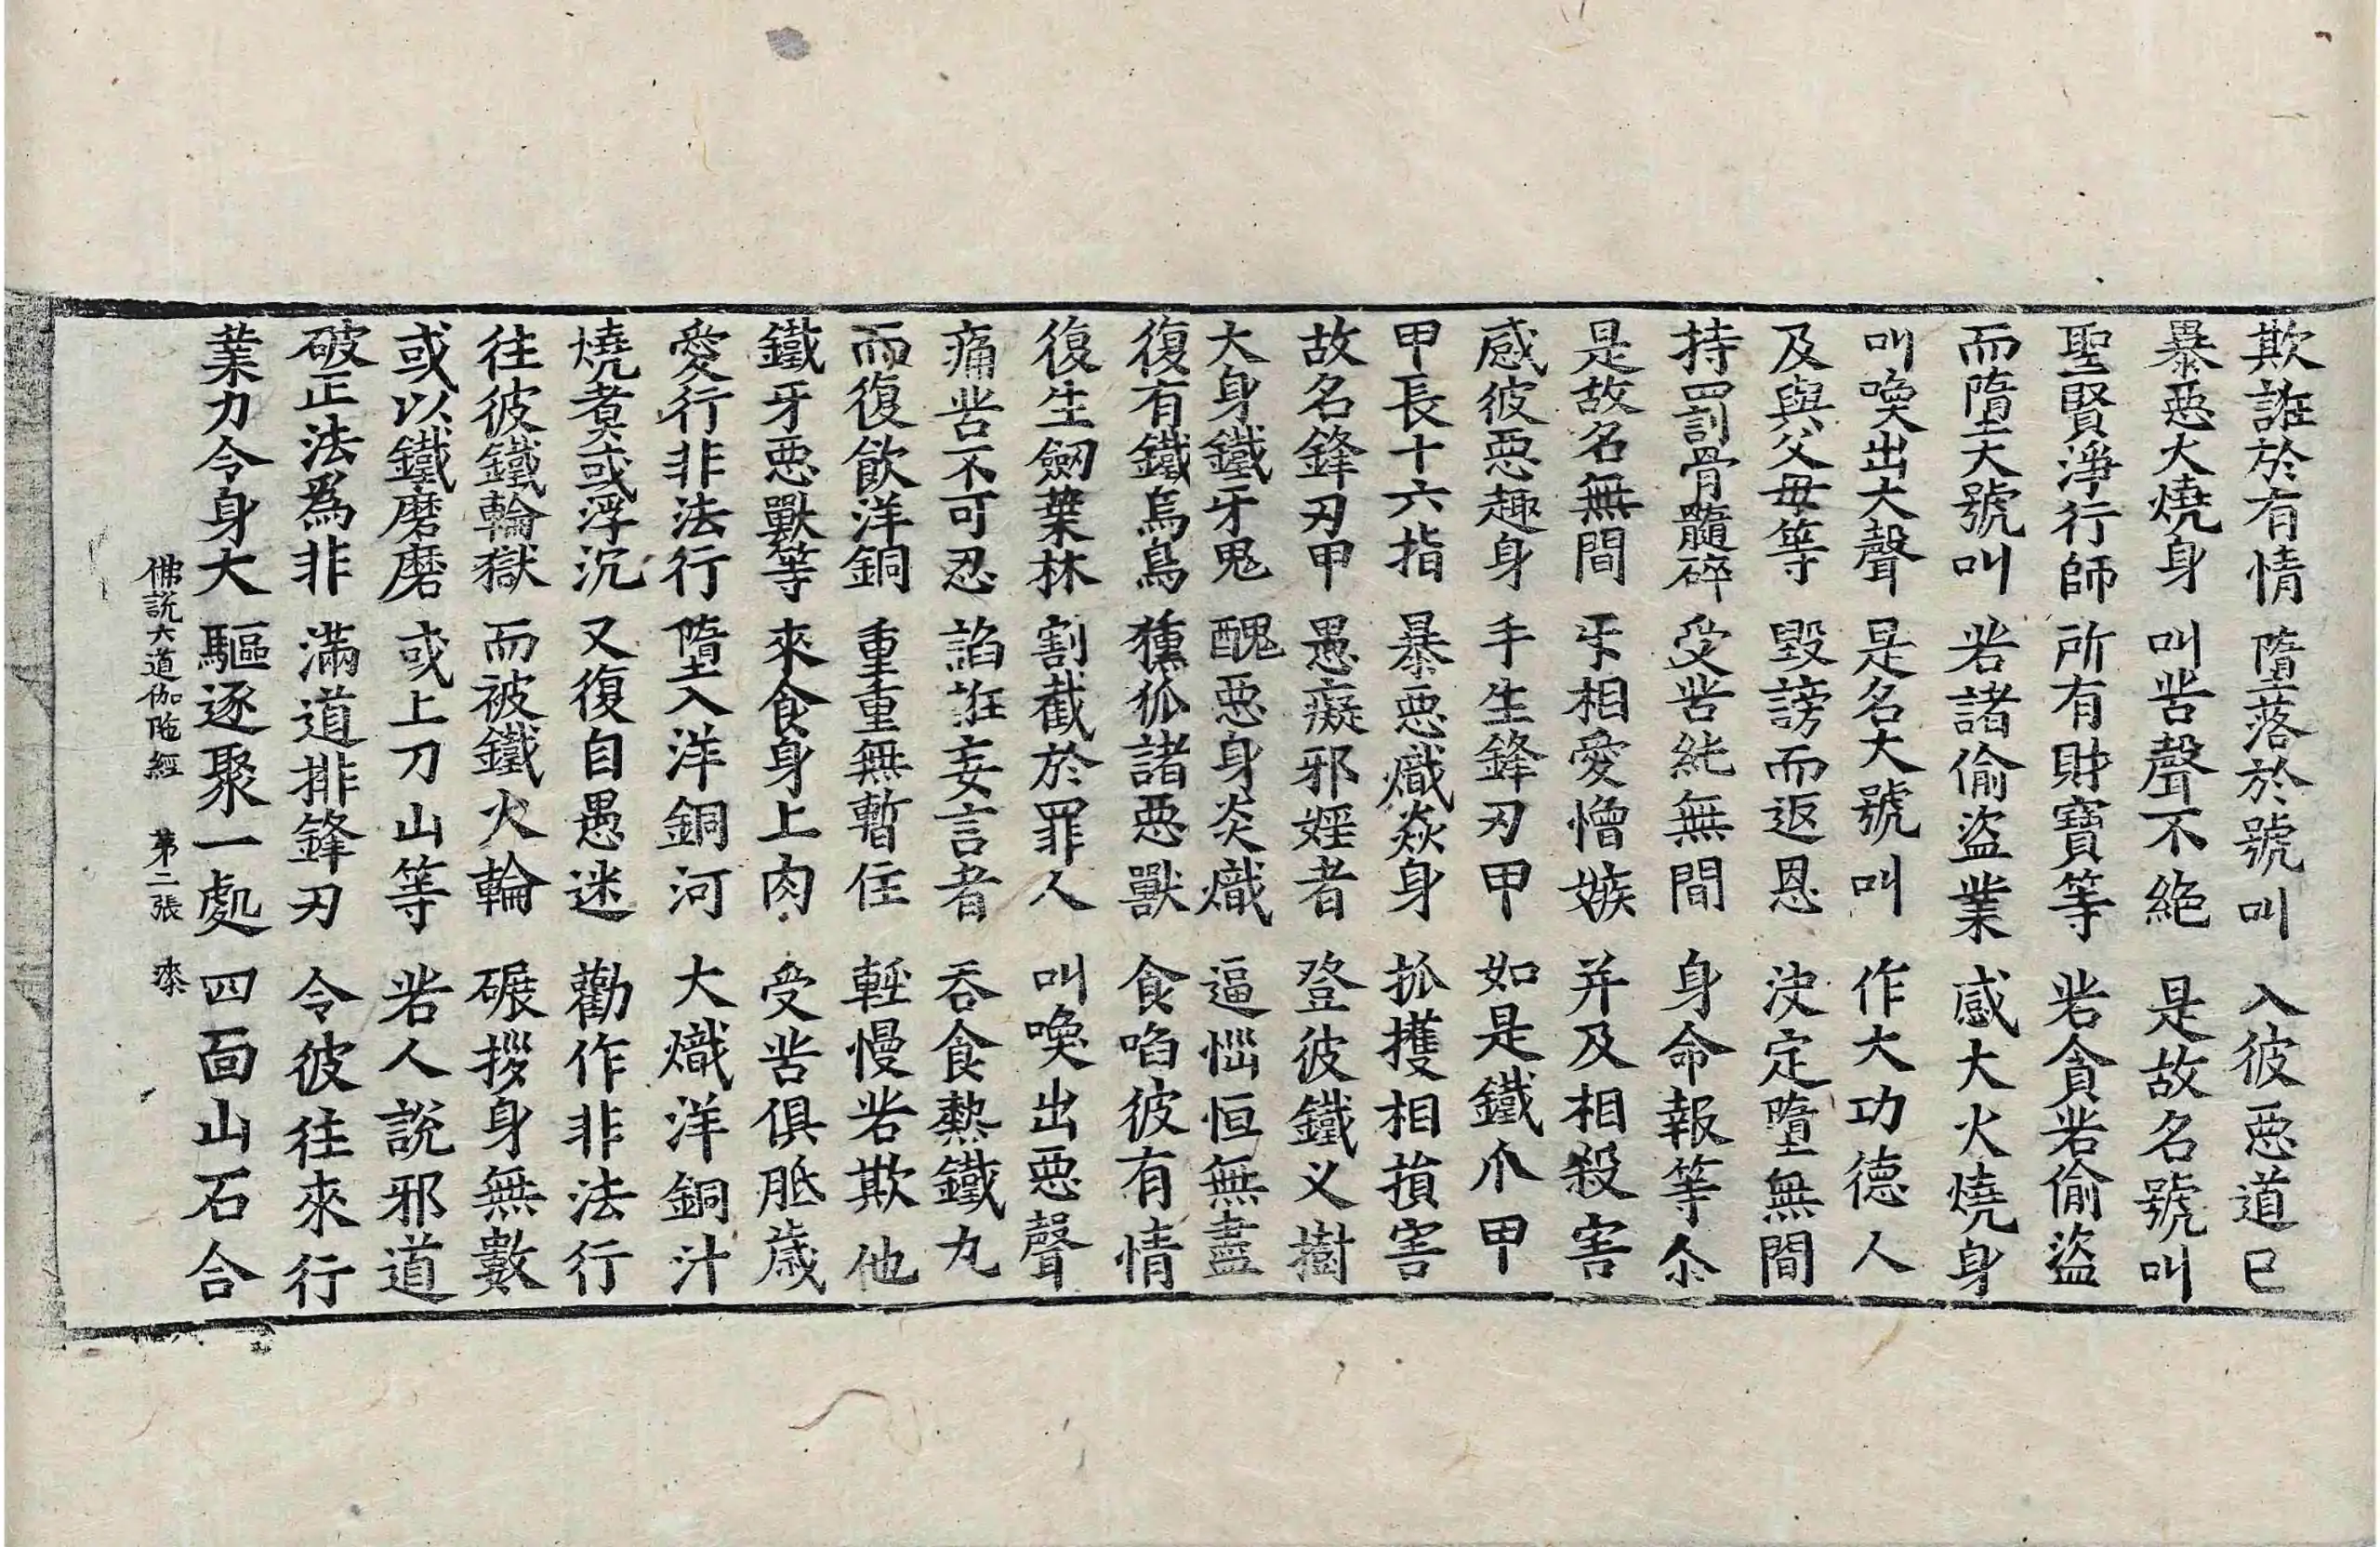 欺誑於有情 墮落於號叫 入彼惡道已
暴惡火燒身 叫苦聲不絕 是故名號叫
聖賢淨行師 所有財寶等 若貪若偷盜
而墮大號叫 若諸偷盜業 感大火燒身
叫喚出大聲 是名大號叫 作大功德人
及與父母等 毀謗而返恩 決定墮無間
持罰骨髓碎 受苦純無間 身命報等尒
是故名無間 㸦相愛憎嫉 并及相殺害
感彼惡趣身 手生鋒刃甲 如是鐵爪甲
甲長十六指 暴惡熾焱身 抓攫相損害
故名鋒刃甲 愚癡邪婬者 登彼鐵叉樹
大身鐵牙鬼 醜惡身炎熾 逼惱恒無盡
復有鐵烏鳥 獯狐諸惡獸 食啗彼有情
復生劒葉林 割截於罪人 叫喚出惡聲
痛苦不可忍 諂誑妄言者 吞食熱鐵丸
而復飲洋銅 重重無暫住 輕慢若欺他
鐵牙惡獸等 來食身上肉 受苦俱胝歲
愛行非法行 墮入洋銅河 大熾洋銅汁
燒煮或浮沉 又復自愚迷 勸作非法行
往彼鐵輪獄 而被鐵火輪 碾拶身無數
或以鐵磨磨 或上刀山等 若人說邪道
破正法爲非 滿道排鋒刃 令彼往來行
業力令身大 驅逐聚一處 四面山石合
佛說六道伽陁經 第二張 漆